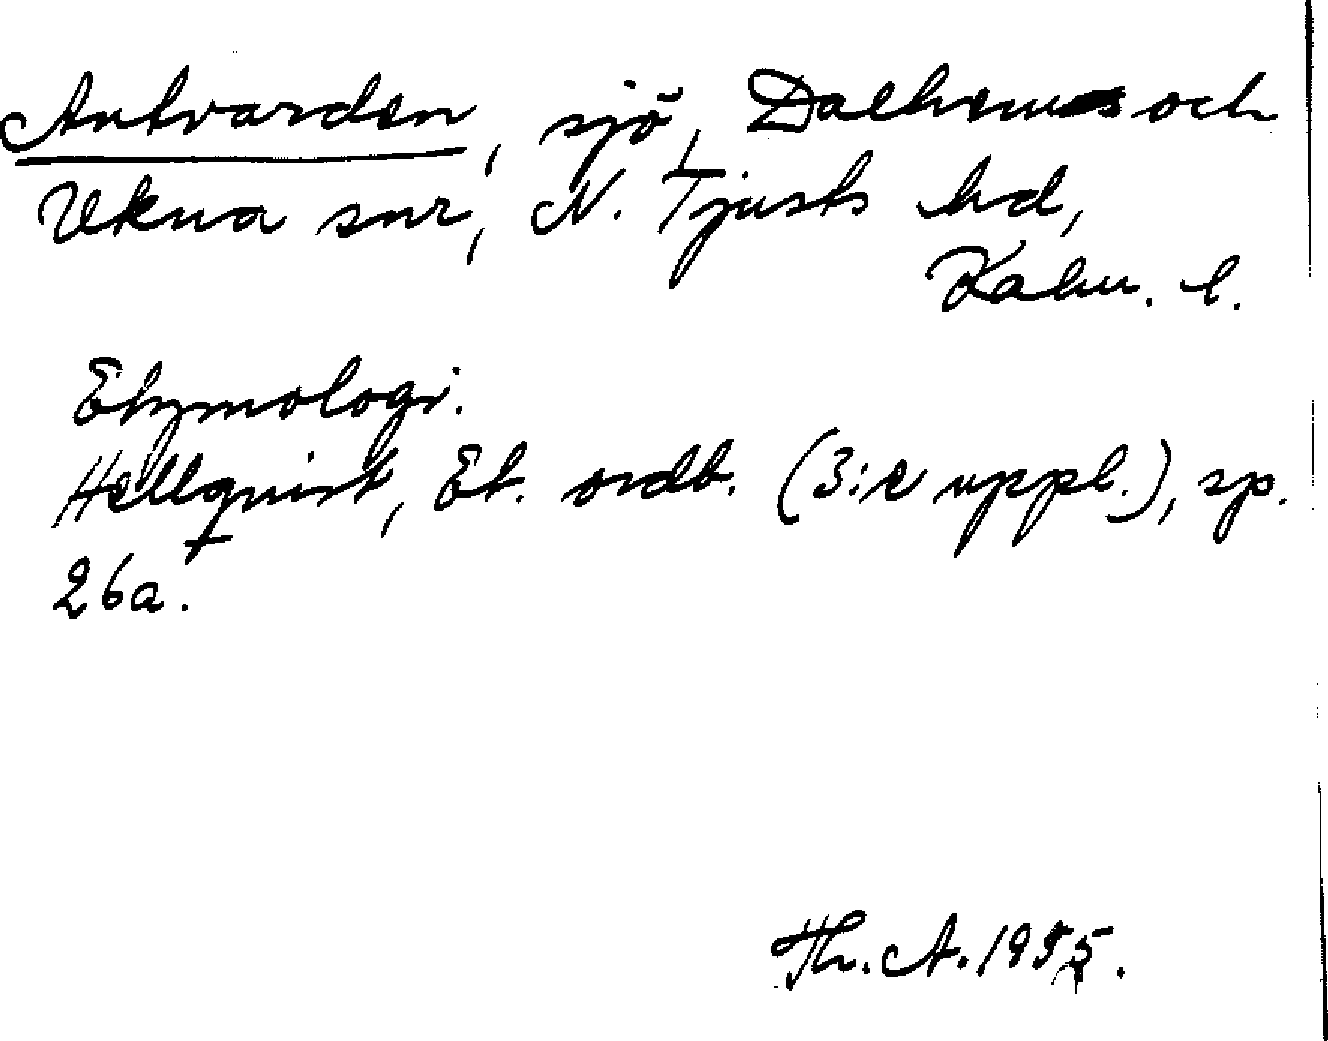 Antvarden, sjö, Dalhems och
Ukna snr, N. Tjusts hd,
Kalm. l.
Etymologi.
Hellquist, Et. ordb. (3:e uppl.), sp.
26a.
Th. A. 1955.